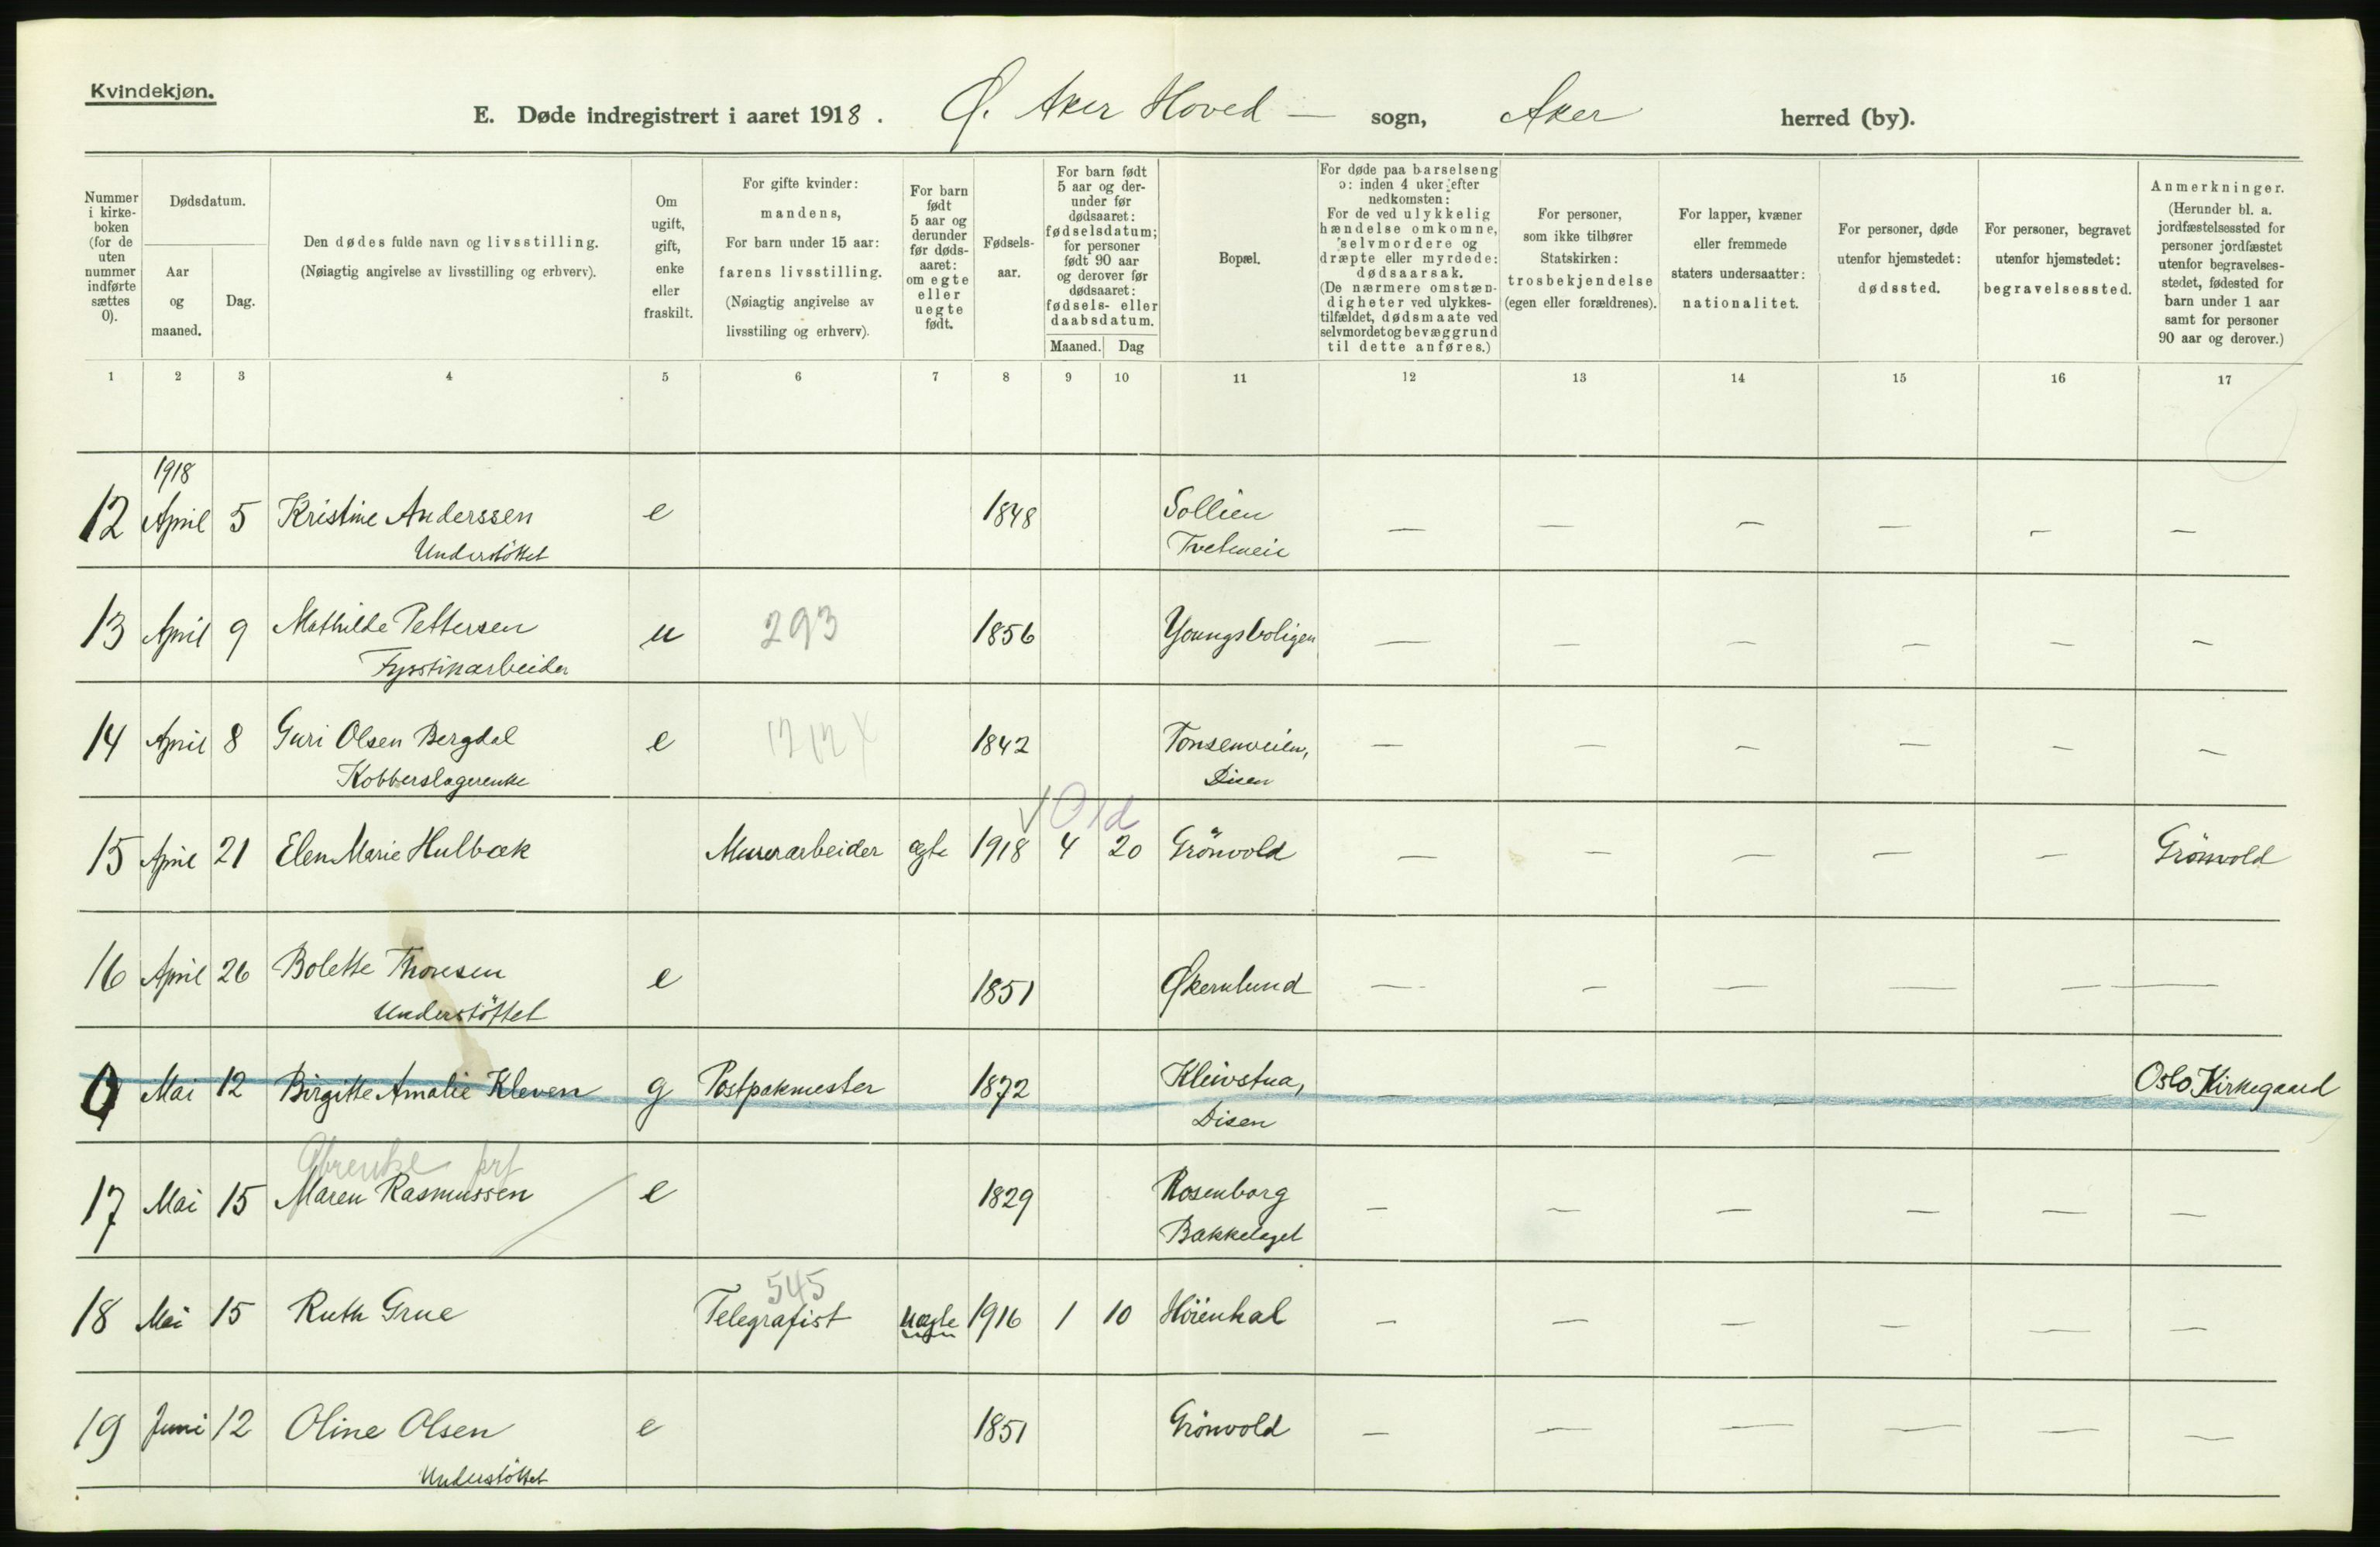 Kvindekjøn.
E. Døde indregistrert i aaret 1918. Ø. Aker Hoved — sogn, Aker herred (by).
Nummer i kirke-boken (for de uten nummer indførte sættes 0).
Dødsdatum.
Aar og maaned.
Dag.
Den dødes fulde navn og livsstilling.
(Nøiagtig angivelse av livsstilling og erhverv).
Om ugift, gift, enke eller fraskilt.
For gifte kvinder: mandens,
For barn under 15 aar: farens livsstilling.
(Nøiagtig angivelse av livsstiling og erhverv).
For barn født 5 aar og derunder før døds-aaret: om egte eller uegte født.
Fødsels-aar.
For barn født 5 aar og der-under før dødsaaret: fødselsdatum; for personer født 90 aar og derover før dødsaaret: fødsels- eller daabsdatum.
Maaned. Dag
Bopæl.
For døde paa barselseng ɔ: inden 4 uker efter nedkomsten:
For de ved ulykkelig hændelse omkomne, selvmordere og dræpte eller myrdede: dødsaarsak.
(De nærmere omstæn-digheter ved ulykkes-tilfældet, dødsmaate ved selvmordet og bevæggrund til dette anføres.)
For personer, som ikke tilhører Statskirken: trosbekjendelse (egen eller forældrenes).
For lapper, kvæner eller fremmede staters undersaatter: nationalitet.
For personer, døde utenfor hjemstedet: dødssted.
For personer, begravet utenfor hjemstedet: begravelsessted.
Anmerkninger.
(Herunder bl. a. jordfæstelsessted for personer jordfæstet utenfor begravelses-stedet, fødested for barn under 1 aar samt for personer 90 aar og derover.)
1 2 3 4 5 6 7 8 9 10 11 12 13 14 15 16 17
1918
12 April 5 Kristine Anderssen e 1848 Sollien — — — — — —
Understöttet Tvetenveie
13 April 9 Mathilde Pettersen u 293 1856 Youngsboligen — — — — — —
14 April 8 Guri Olsen Bergdal e 1212 X 1842 Tonsenveien, — — — — — —
Kobberslagerenke Disen
√ Old
15 April 21 Elen Marie Hulbæk Murerarbeider egte 1918 4 20 Grönvold — — — — — Grönvold
16 April 26 Bolette Thoresen e 1851 Økernlund — — — — — —
Understöttet
0 Mai 12 Birgitte Amalie Kleven g Postpakmester 1872 Kleivstua, — — — — — Oslo Kirkegaard
Disen
17 Mai 15 Maren Rasmussen e 1829 Rosenborg — — — — — —
Bakkelaget
545
18 Mai 15 Ruth Grue Telegrafist uegte 1916 1 10 Höienhal — — — — — —
19 Juni 12 Oline Olsen e 1851 Grönvold — — — — — —
Understöttet